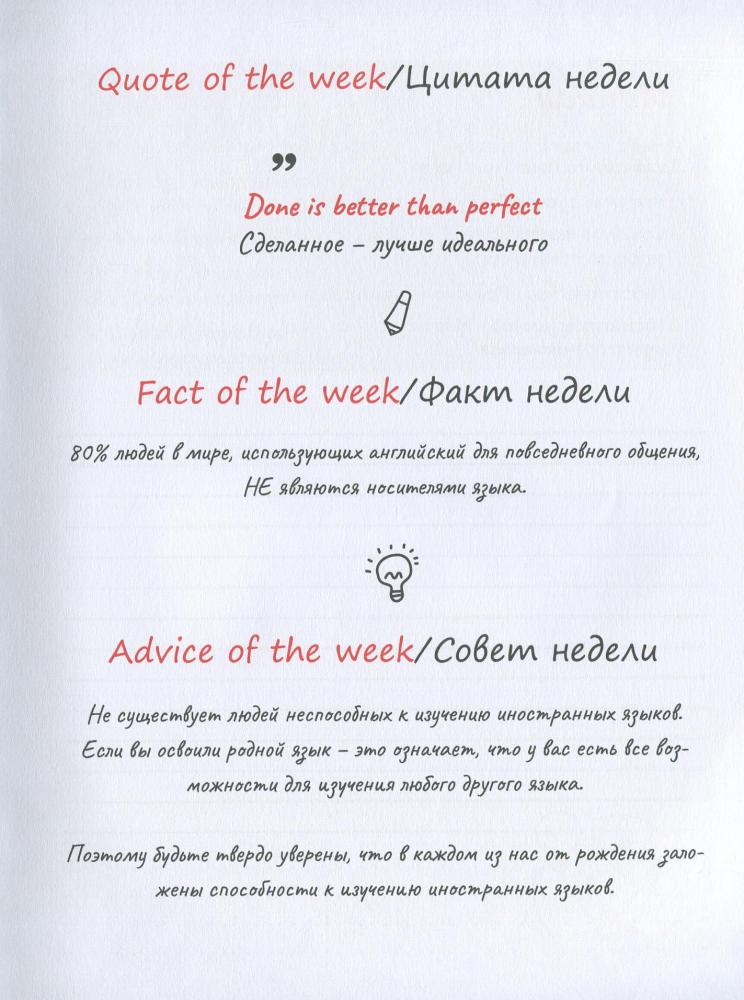 Quote of the week/Цитата недели
”
Done is better than perfect
Сделанное – лучше идеального
Fact of the week/Факт недели
80% людей в мире, использующих английский для повседневного общения,
НЕ являются носителями языка.
Advice of the week/Совет недели
Не существует людей неспособных к изучению иностранных языков.
Если вы освоили родной язык – это означает, что у вас есть все воз-
можности для изучения любого другого языка.
Поэтому будьте твердо уверены, что в каждом из нас от рождения зало-
жены способности к изучению иностранных языков.